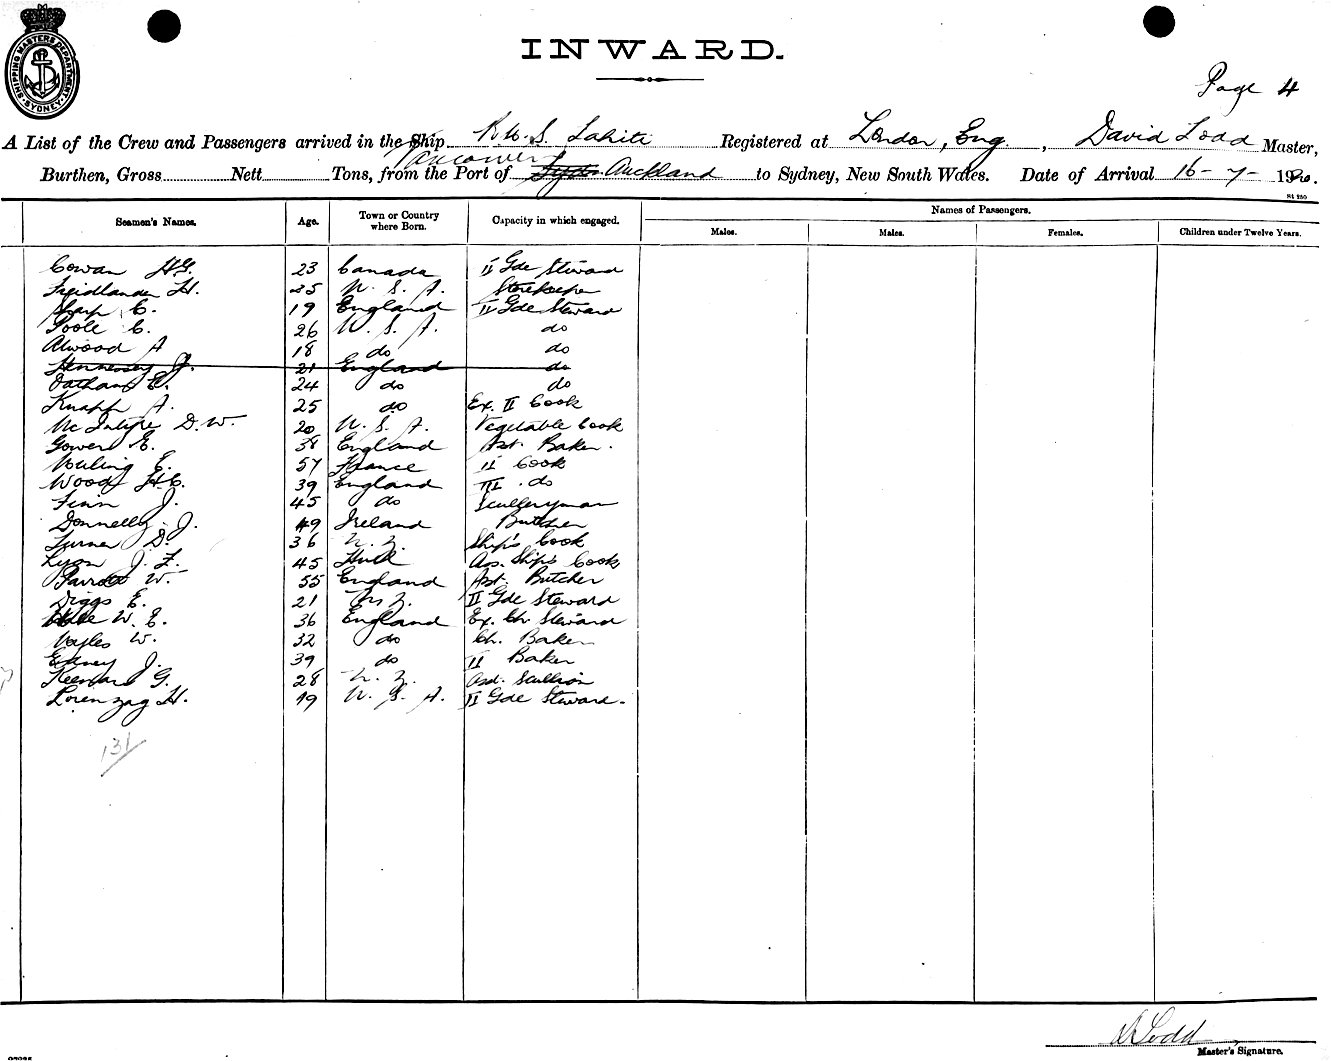 SHIPPING MASTERS DEPARTMENT SYDNEY
INWARD.
Page 4
A List of the Crew and Passengers arrived in the Ship R.M.S. Tahiti Registered at London, Eng., David Todd Master,
Vancouver
Burthen, Gross Nett Tons, from the Port of Sydney Auckland to Sydney, New South Wales. Date of Arrival 16-7-1920.
St 250
Seamen's Names. Age. Town or Country where Born. Capacity in which engaged. Names of Passengers.
Males. Males. Females. Children under Twelve Years.
Cowan H.G. 23 Canada II Gde Steward
Freidlander H. 25 U.S.A. Storekeeper
Sharp C. 19 England II Gde Steward
Poole C. 26 U.S.A. do
Alwood A 18 do do
Hennessey J. 21 England do
Oatham E. 24 do do
Knapp A. 25 do Ex. II Cook
McIntyre D.W. 20 U.S.A. Vegetable Cook
Gowers E. 38 England Asst. Baker.
E. 57 France II Cook
Wood H.C. 39 England III do
Finn J. 45 do Sculleryman
Donnelly J. 49 Ireland Butcher
Turner D. 36 N.Z. Ship's Cook
Lyon J.F. 45 Hull Ass. Ship's Cook
Parrott W. 55 England Asst. Butcher
Diggs E. 21 N.Z. II Gde Steward
W.E. 36 England Ex. Ch. Steward
Vayles W. 32 do Ch. Baker
Edney J. 39 do II Baker
Keenard G. 28 N.Z. Asst. Scullion
Lorenzag H. 19 U.S.A. II Gde Steward.
131
D Todd
Master's Signature.